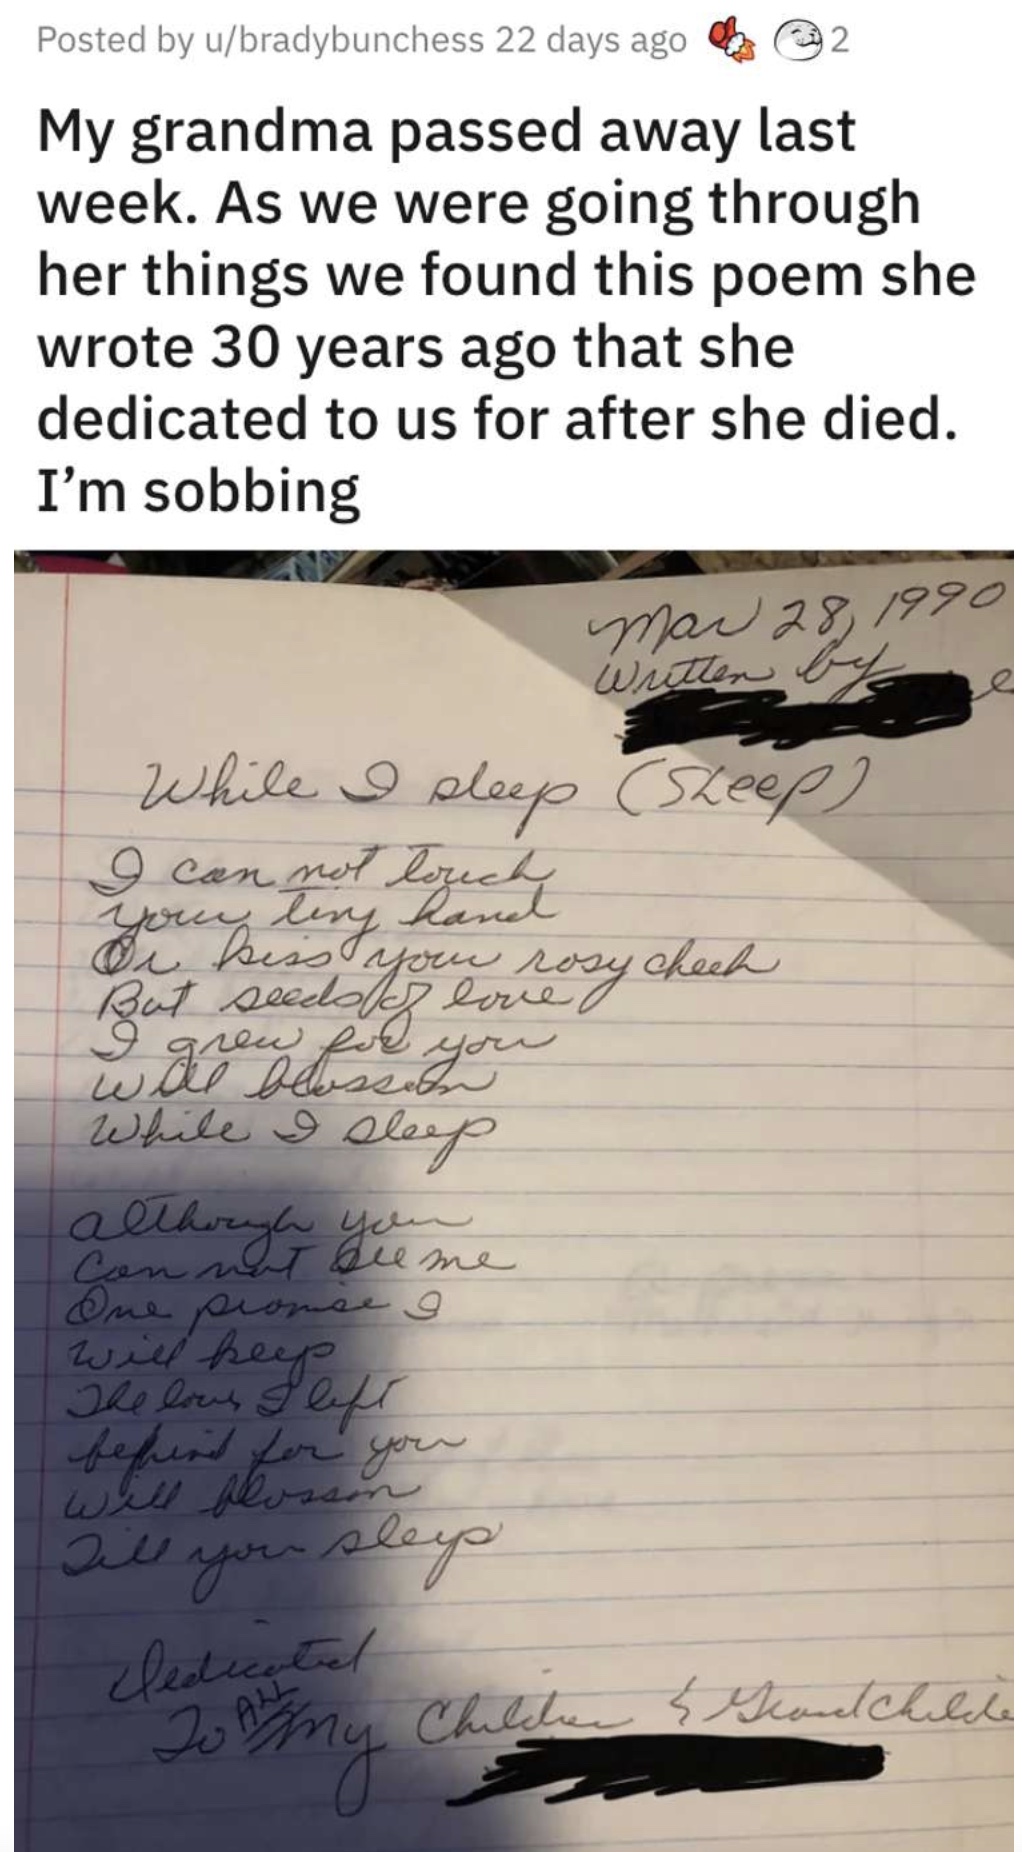 Posted by u/bradybunchess 22 days ago 2
My grandma passed away last
week. As we were going through
her things we found this poem she
wrote 30 years ago that she
dedicated to us for after she died.
I'm sobbing
Mar 28, 1990
Written by
While I sleep (SLeep)
I can not touch
your tiny hand
Or kiss your rosy cheek
But seeds of love
I grew for you
will blossom
While I sleep
Although you
Can not see me
One promise I
will keep
The love I left
behind for you
will blossom
Till you sleep
Dedicated
To ALL My Children & Grandchilde